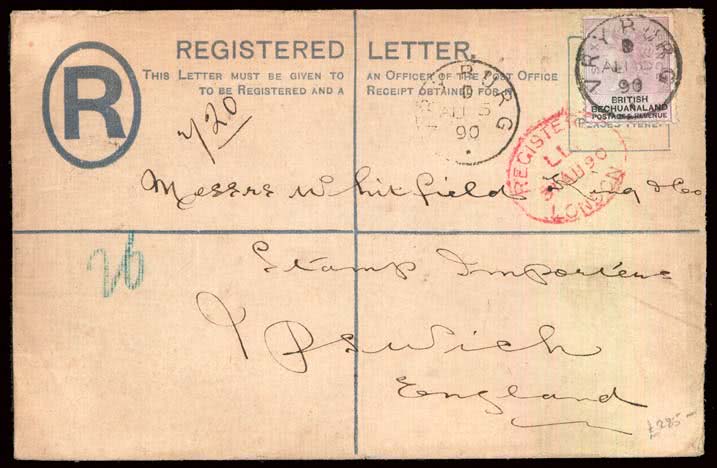 REGISTERED LETTER.
THIS LETTER MUST BE GIVEN TO AN OFFICER OF THE POST OFFICE
TO BE REGISTERED AND A RECEIPT OBTAINED FOR IT.
R
VRYBURG
AU 5
90
VRYBURG
AU 5
90
BRITISH
BECHUANALAND
POSTAGE & REVENUE
REGISTERED
AU 90
LONDON
Messrs Whitfield King & Co
26
Stamp Importers
Ipswich
England
£285